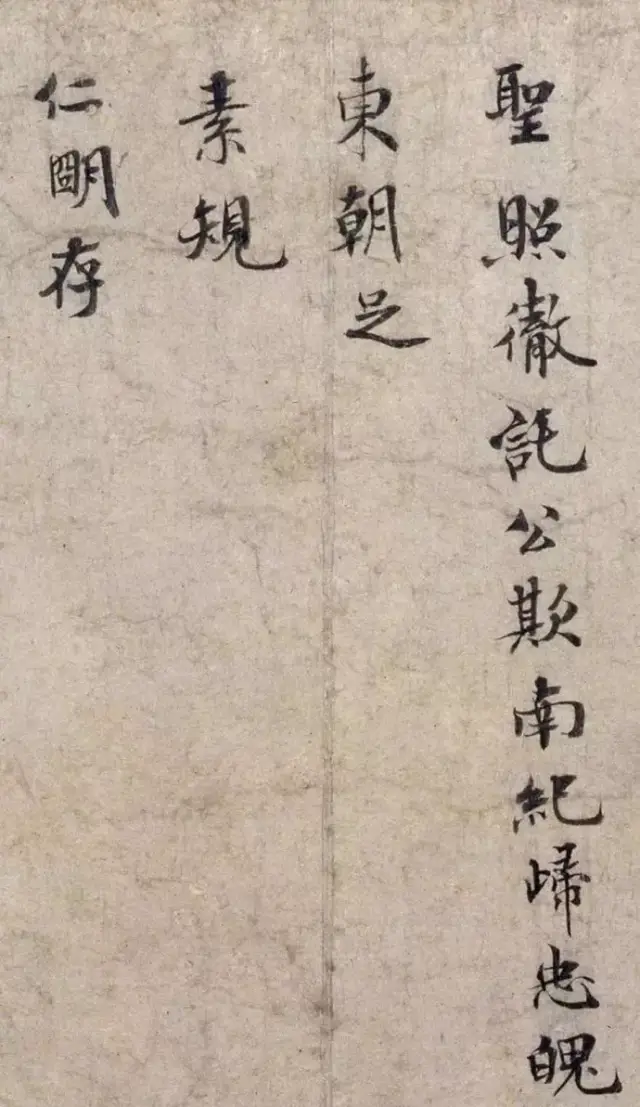 聖照徹託公欺南紀歸忠魄
東朝足
素規
仁明存